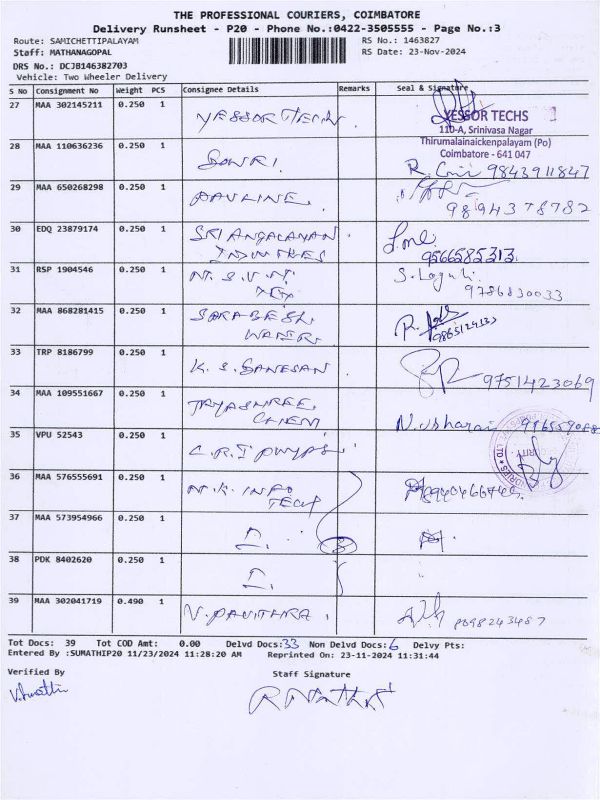 THE PROFESSIONAL COURIERS, COIMBATORE
Delivery Runsheet - P20 - Phone No.:0422-3505555 - Page No.:3
Route: SAMICHETTIPALAYAM RS No.: 1463827
Staff: MATHANAGOPAL RS Date: 23-Nov-2024
DRS No.: DCJB146382703
Vehicle: Two Wheeler Delivery
S No Consignment No Weight PCS Consignee Details Remarks Seal & Signature
27 MAA 302145211 0.250 1 YESSOR TECH YESSOR TECHS
110-A, Srinivasa Nagar
Thirumalainaickenpalayam (Po)
Coimbatore - 641 047
28 MAA 110636236 0.250 1 9843911847
29 MAA 650268298 0.250 1 PAVLINE 9894378782
30 EDQ 23879174 0.250 1 SRI ANGALAMAN
9566585313
31 RSP 1904546 0.250 1 M.S.V.M.
TEX 9786830033
32 MAA 868281415 0.250 1
WATER 9865129133
33 TRP 8186799 0.250 1 K.S. GANESAN 9751423069
34 MAA 109551667 0.250 1 JAYASHREE
CHEM N. Usharani
35 VPU 52543 0.250 1 C.R.I PUMPS
36 MAA 576555691 0.250 1 M.K. INFO
TECH
37 MAA 573954966 0.250 1
38 PDK 8402620 0.250 1
39 MAA 302041719 0.490 1 V. PAVITHRA
Tot Docs: 39 Tot COD Amt: 0.00 Delvd Docs:33 Non Delvd Docs:6 Delvy Pts:
Entered By :SUMATHIP20 11/23/2024 11:28:20 AM Reprinted On: 23-11-2024 11:31:44
Verified By Staff Signature